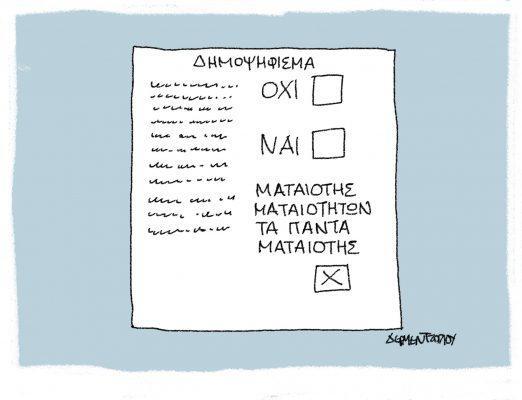 ΔΗΜΟΨΗΦΙΣΜΑ
ΟΧΙ
ΝΑΙ
ΜΑΤΑΙΟΤΗΣ
ΜΑΤΑΙΟΤΗΤΩΝ
ΤΑ ΠΑΝΤΑ
ΜΑΤΑΙΟΤΗΣ
X